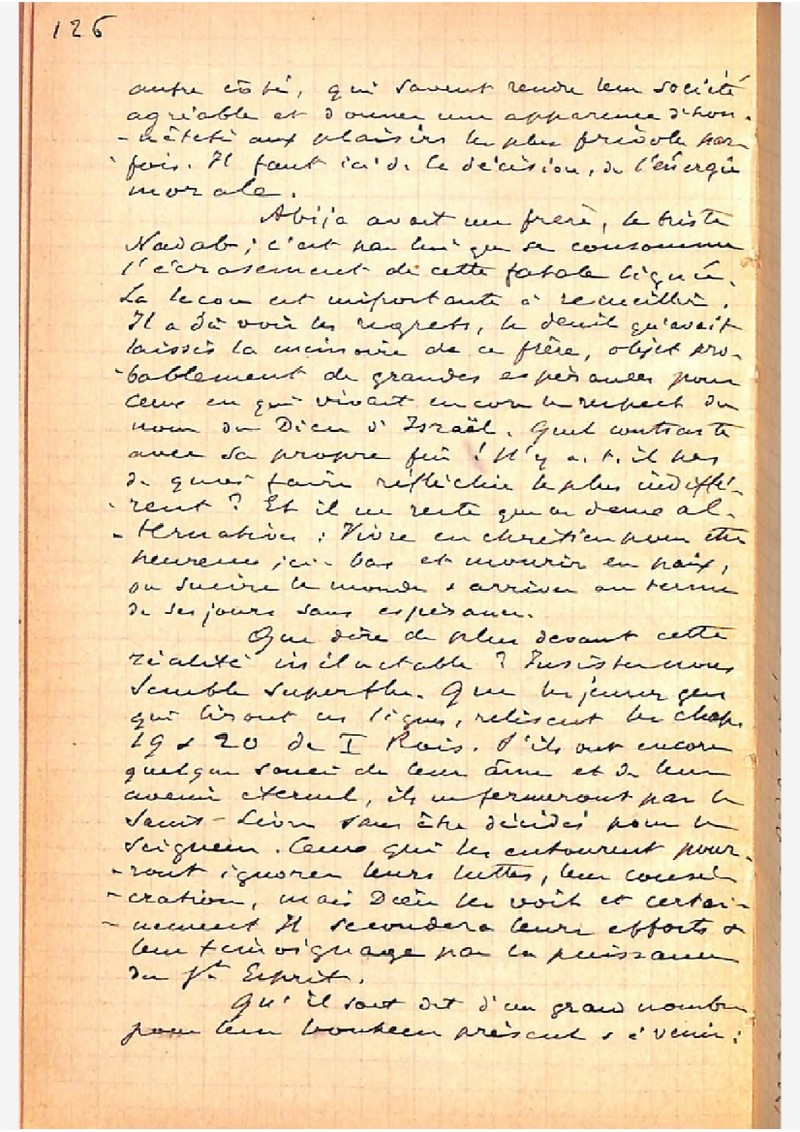 126
autre côté, qui savent rendre leur société
agréable et donner une apparence d'hon-
-nêteté aux plaisirs les plus frivoles par-
-fois. Il faut ici de la décision, de l'énergie
morale.
Abija avait un frère, le triste
Nadab ; c'est par lui que se consomme
l'écrasement de cette fatale lignée.
La leçon est importante à recueillir.
Il a dû voir les regrets, le deuil qu'avait
laissés la mémoire de ce frère, objet pro-
-bablement de grandes espérances pour
ceux en qui vivait encore le respect du
nom du Dieu d'Israël. Quel contraste
avec sa propre fin ! N'y a-t-il pas
de quoi faire réfléchir le plus indiffé-
-rent ? Et il ne reste que ce al-
-ternative : Vivre en chrétien pour être
heureux ici-bas et mourir en paix,
ou suivre le monde & arriver au terme
de ses jours sans espérance.
Que dire de plus devant cette
réalité inéluctable ? Insister nous
semble superflu. Que les jeunes gens
qui liront ces lignes, relisent les chap.
19 & 20 de I Rois. S'ils ont encore
quelque souci de leur âme et de leur
avenir éternel, ils ne fermeront pas le
Saint-Livre sans être décidés pour le
Seigneur. Ceux qui les entourent pour-
-ront ignorer leurs luttes, leur consé-
-cration, mais Dieu les voit et certai-
-nement Il secondera leurs efforts &
leur témoignage par la puissance
du St Esprit.
Qu'il soit dit d'un grand nombre
pour leur bonheur présent & à venir :